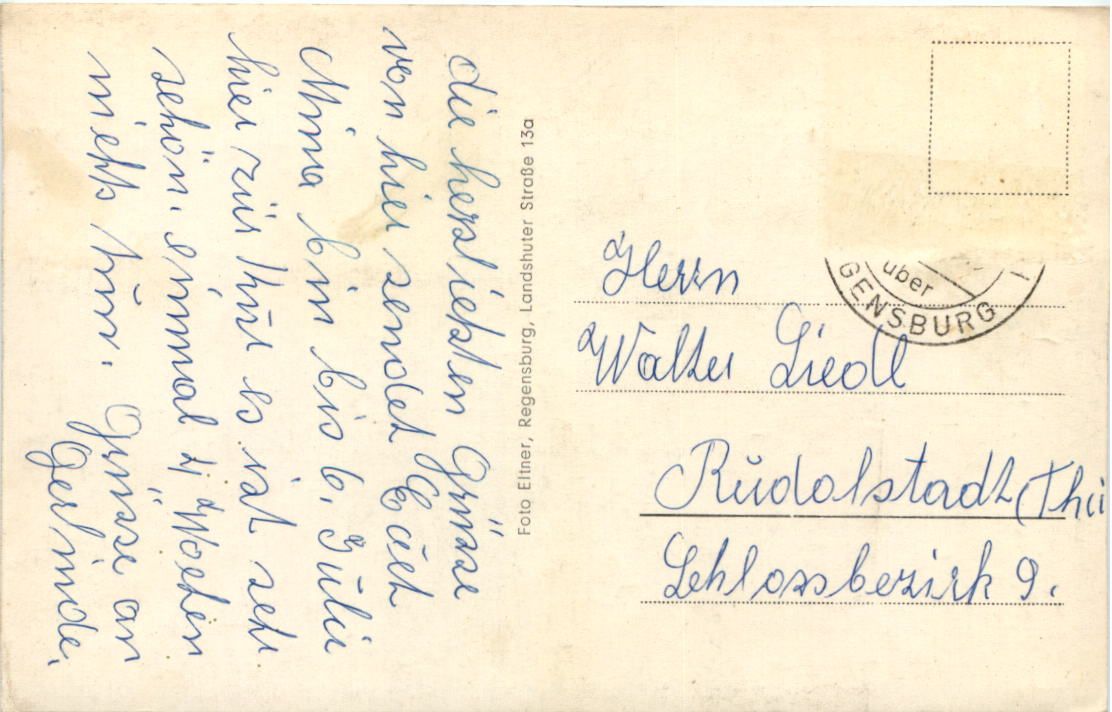 die herzlichsten Grüsse
von hier sendet Euch
Mina bin bis 6. Juli
hier zur Kur es ist sehr
schön. einmal 4 Wochen
nichts tun. Grüsse an
Gerlinde.
Foto Eltner, Regensburg, Landshuter Straße 13a
über
GENSBURG
Herrn
Walter Liedl
Rudolstadt (Thü
Schlossbezirk 9.